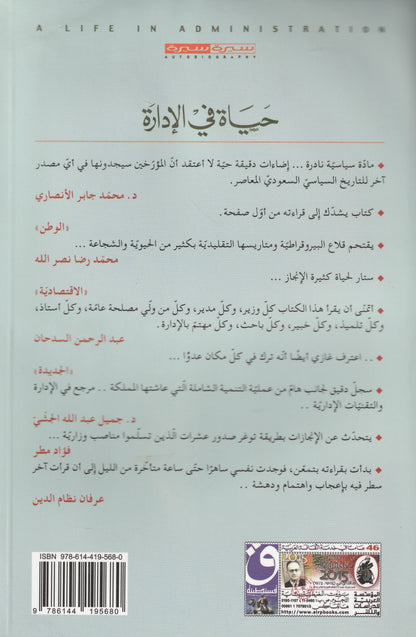 A LIFE IN ADMINISTRATION
سيرة سيرة
AUTOBIOGRAPHY
حياة في الإدارة
مادّة سياسيّة نادرة ... إضاءات دقيقة حيّة لا أعتقد أنّ المؤرّخين سيجدونها في أيّ مصدر
آخر للتاريخ السياسيّ السعوديّ المعاصر.
د. محمّد جابر الأنصاري
كتاب يشدّك إلى قراءته من أوّل صفحة.
«الوطن»
يقتحم قلاع البيروقراطيّة ومتاريسها التقليديّة بكثير من الحيويّة والشجاعة ...
محمد رضا نصر الله
ستار لحياة كثيرة الإنجاز ...
«الاقتصاديّة»
أتمنّى أن يقرأ هذا الكتاب كلّ وزير، وكلّ مدير، وكلّ من ولي مصلحة عامّة، وكلّ أستاذ،
وكلّ تلميذ، وكلّ خبير، وكلّ باحث، وكلّ مهتمّ بالإدارة.
عبد الرحمن السدحان
.. اعترف غازي أيضًا أنّه ترك في كلّ مكان عدوًّا ...
«الجديدة»
سجلّ دقيق لجانب هامّ من عمليّة التنمية الشاملة الّتي عاشتها المملكة .. مرجع في الإدارة
والتقنيّات الإداريّة ..
د. جميل عبد الله الجشّيّ
يتحدّث عن الإنجازات بطريقة توغر صدور عشرات الّذين تسلّموا مناصب وزاريّة ..
فؤاد مطر
بدأت بقراءته بتمعّن، فوجدت نفسي ساهرًا حتّى ساعة متأخّرة من الليل إلى أن قرأت آخر
سطر فيه بإعجاب واهتمام ودهشة ..
عرفان نظام الدين
ISBN 978-614-419-568-0
9 786144 195680
46
2015
المؤسسة
العربية
للدراسات
www.airpbooks.com